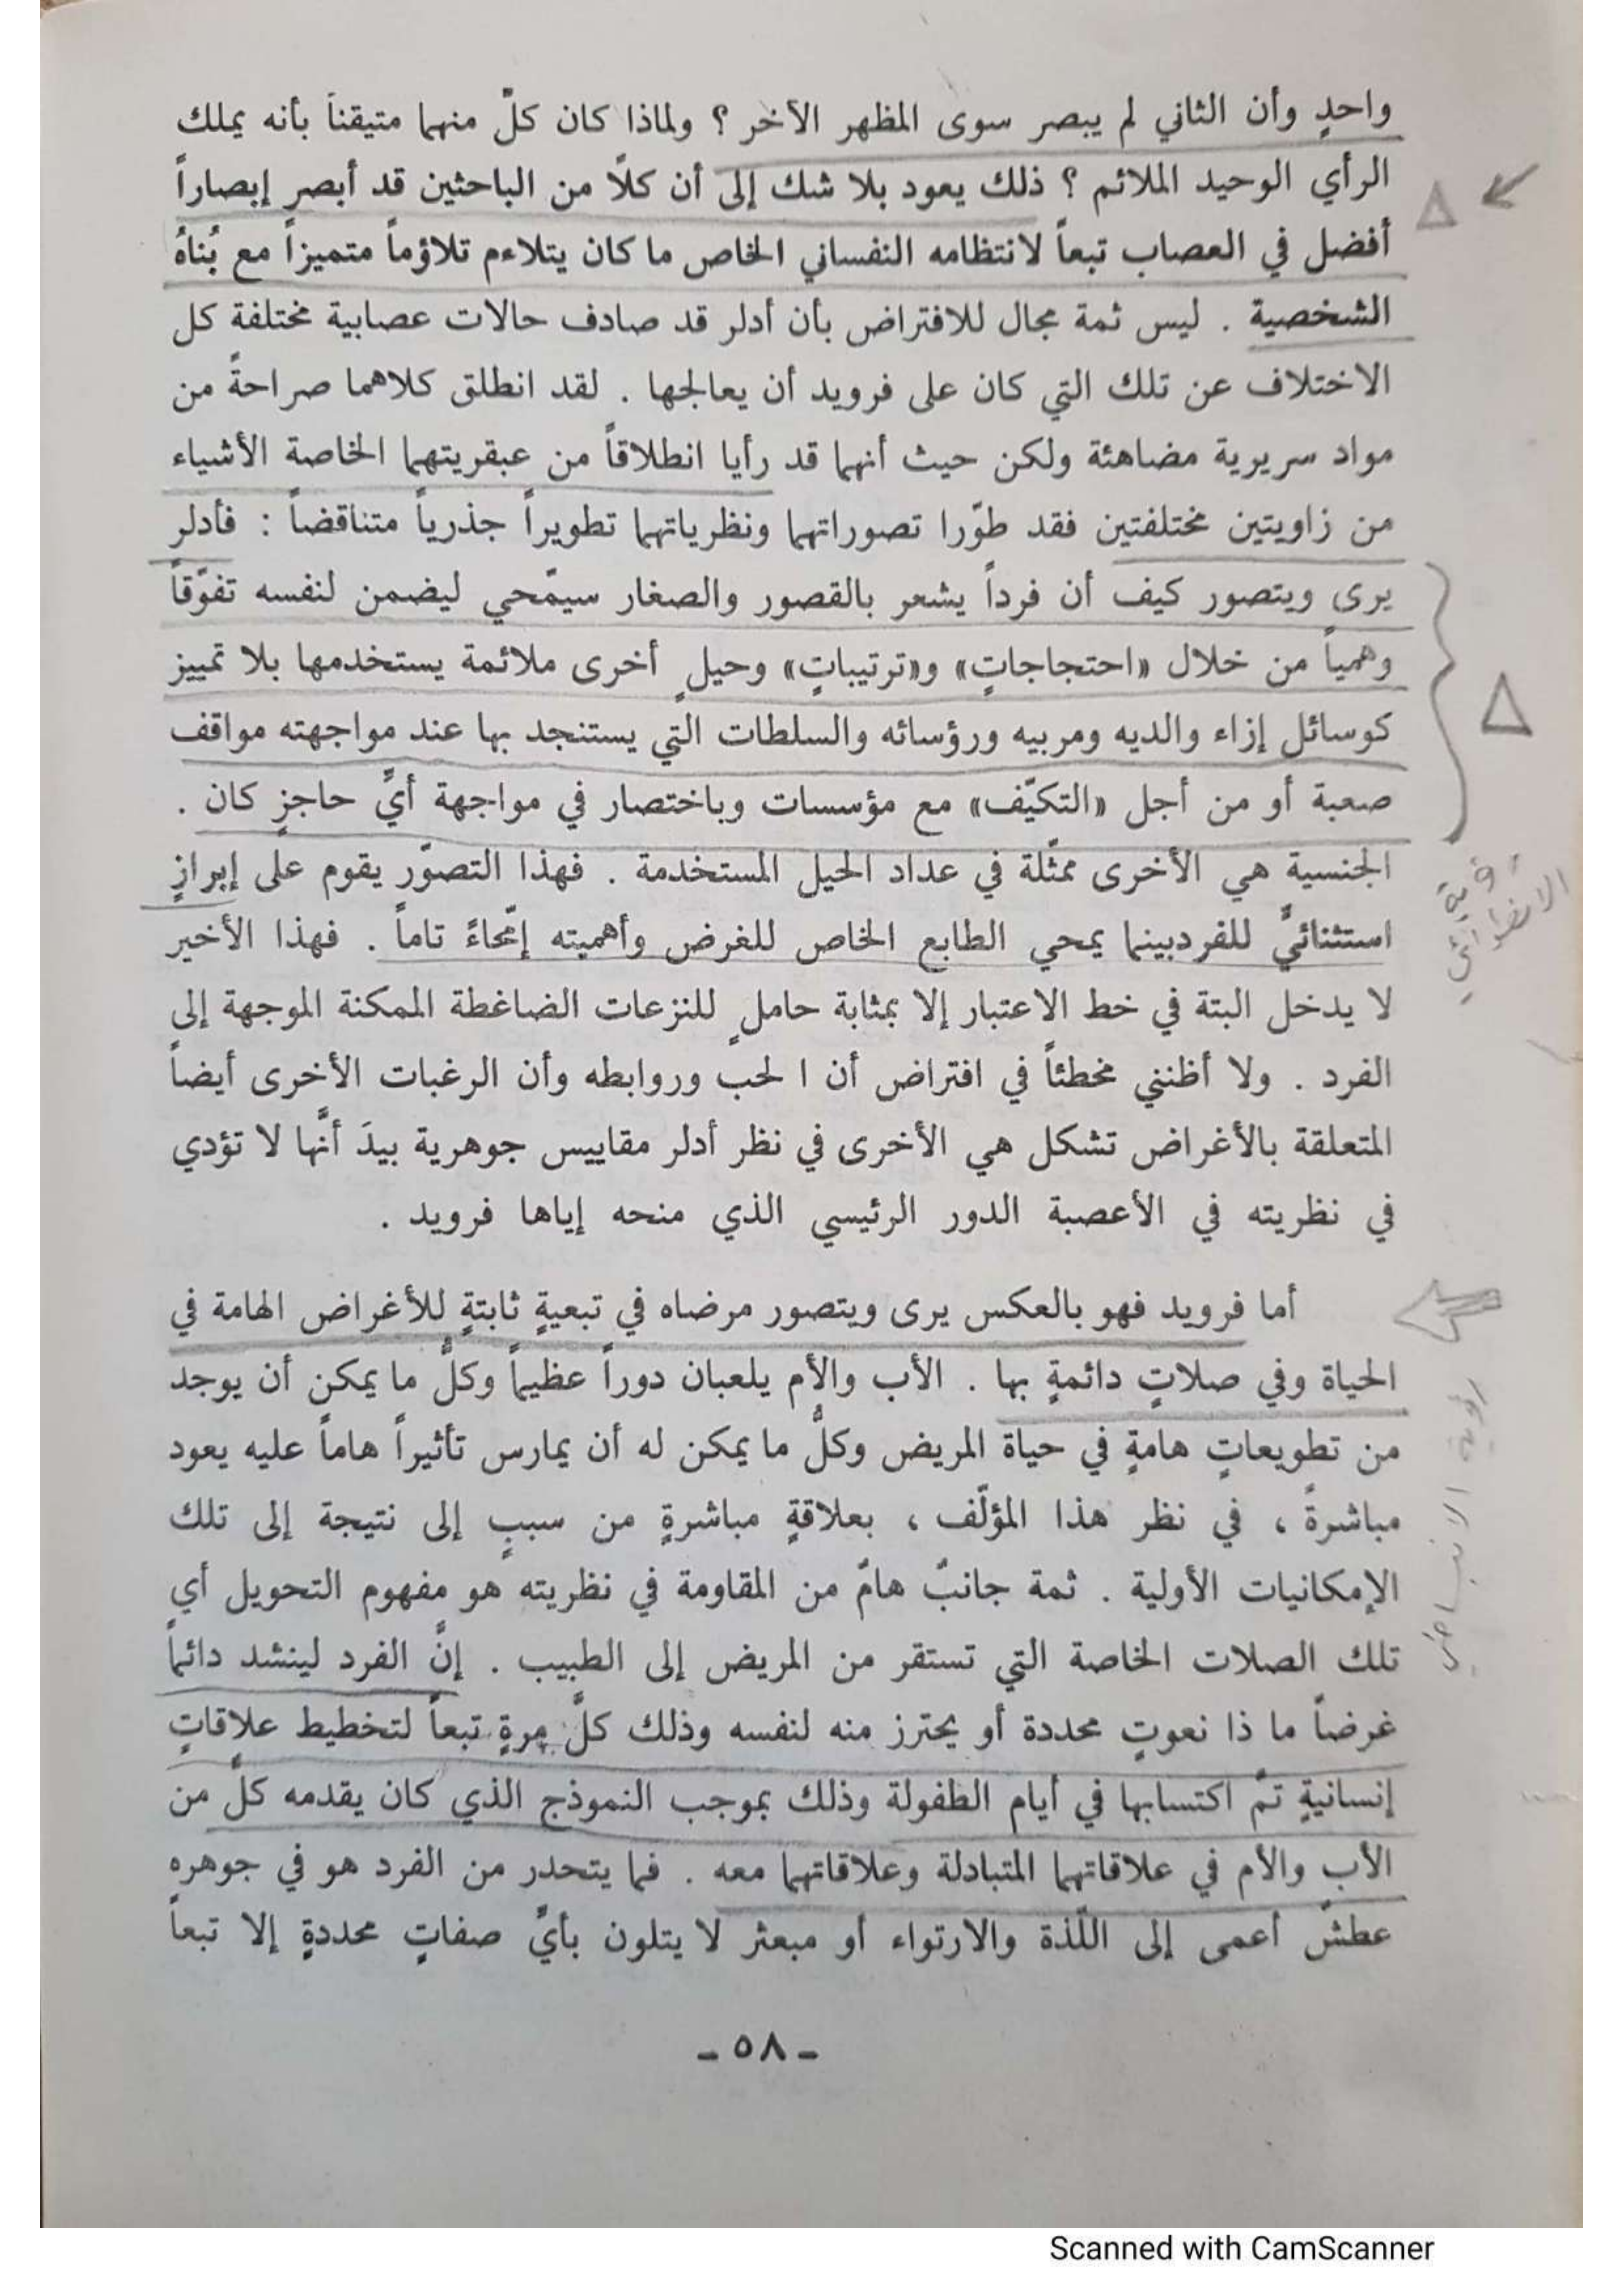 واحدٍ وأن الثاني لم يبصر سوى المظهر الآخر ؟ ولماذا كان كلٌّ منهما متيقناً بأنه يملك
الرأي الوحيد الملائم ؟ ذلك يعود بلا شك إلى أن كلًا من الباحثين قد أبصر إبصاراً
أفضل في العصاب تبعاً لانتظامه النفساني الخاص ما كان يتلاءم تلاؤماً متميزاً مع بُناهُ
الشخصية . ليس ثمة مجال للافتراض بأن أدلر قد صادف حالات عصابية مختلفة كل
الاختلاف عن تلك التي كان على فرويد أن يعالجها . لقد انطلق كلاهما صراحةً من
مواد سريرية مضاهئة ولكن حيث أنهما قد رأيا انطلاقاً من عبقريتهما الخاصة الأشياء
من زاويتين مختلفتين فقد طوّرا تصوراتهما ونظرياتهما تطويراً جذرياً متناقضاً : فأدلر
يرى ويتصور كيف أن فرداً يشعر بالقصور والصغار سيمّحي ليضمن لنفسه تفوّقاً
وهمياً من خلال «احتجاجاتٍ» و«ترتيباتٍ» وحيلٍ أخرى ملائمة يستخدمها بلا تمييز
كوسائل إزاء والديه ومربيه ورؤسائه والسلطات التي يستنجد بها عند مواجهته مواقف
صعبة أو من أجل «التكيّف» مع مؤسسات وباختصار في مواجهة أيِّ حاجزٍ كان .
الجنسية هي الأخرى ممثّلة في عداد الحيل المستخدمة . فهذا التصوّر يقوم على إبرازٍ
استثنائيٍّ للفردبينما يمحي الطابع الخاص للغرض وأهميته إمّحاءً تاماً . فهذا الأخير
لا يدخل البتة في خط الاعتبار إلا بمثابة حاملٍ للنزعات الضاغطة الممكنة الموجهة إلى
الفرد . ولا أظنني مخطئاً في افتراض أن ا لحب وروابطه وأن الرغبات الأخرى أيضاً
المتعلقة بالأغراض تشكل هي الأخرى في نظر أدلر مقاييس جوهرية بيدَ أنَّها لا تؤدي
في نظريته في الأعصبة الدور الرئيسي الذي منحه إياها فرويد .
رؤية
الانطوائي
أما فرويد فهو بالعكس يرى ويتصور مرضاه في تبعيةٍ ثابتةٍ للأغراض الهامة في
الحياة وفي صلاتٍ دائمةٍ بها . الأب والأم يلعبان دوراً عظيماً وكلُّ ما يمكن أن يوجد
من تطويعاتٍ هامةٍ في حياة المريض وكلُّ ما يمكن له أن يمارس تأثيراً هاماً عليه يعود
مباشرةً ، في نظر هذا المؤلّف ، بعلاقةٍ مباشرةٍ من سببٍ إلى نتيجة إلى تلك
الإمكانيات الأولية . ثمة جانبٌ هامٌ من المقاومة في نظريته هو مفهوم التحويل أي
تلك الصلات الخاصة التي تستقر من المريض إلى الطبيب . إنَّ الفرد لينشد دائماً
غرضاً ما ذا نعوتٍ محددة أو يحترز منه لنفسه وذلك كلَّ مرةٍ تبعاً لتخطيط علاقاتٍ
إنسانيةٍ تمَّ اكتسابها في أيام الطفولة وذلك بموجب النموذج الذي كان يقدمه كلٌّ من
الأب والأم في علاقاتهما المتبادلة وعلاقاتهما معه . فما يتحدر من الفرد هو في جوهره
عطشٌ أعمى إلى اللّذة والارتواء أو مبعثر لا يتلون بأيِّ صفاتٍ محددةٍ إلا تبعاً
رؤية الانبساطي
- ٥٨ -
Scanned with CamScanner